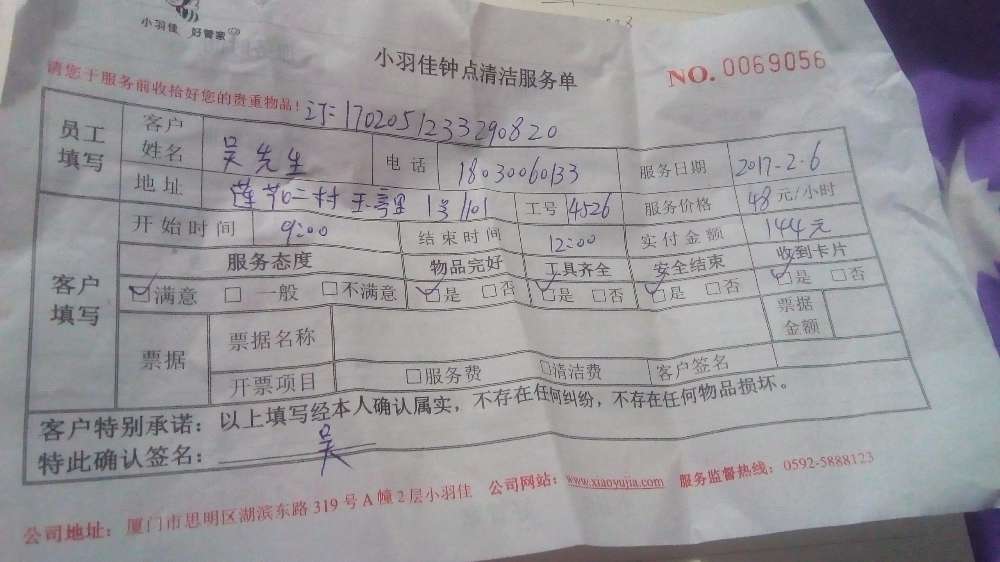 小羽佳 好管家
小羽佳钟点清洁服务单
NO. 0069056
请您于服务前收拾好您的贵重物品！
订:170205123329082 0
员工填写 客户姓名 吴先生 电话 18030060133 服务日期 2017-2-6
地址 莲花二村 1号1101 工号 14526 服务价格 48元/小时
客户填写 开始时间 9:00 结束时间 12:00 实付金额 144元
服务态度 物品完好 工具齐全 安全结束 收到卡片
☑满意 □一般 □不满意 ☑是 □否 ☑是 □否 ☑是 □否 ☑是 □否
票据 票据名称 票据金额
开票项目 □服务费 □清洁费 客户签名
客户特别承诺：以上填写经本人确认属实，不存在任何纠纷，不存在任何物品损坏。
特此确认签名：吴
公司地址：厦门市思明区湖滨东路319号A幢2层小羽佳 公司网站：www.xiaoyujia.com 服务监督热线：0592-5888123